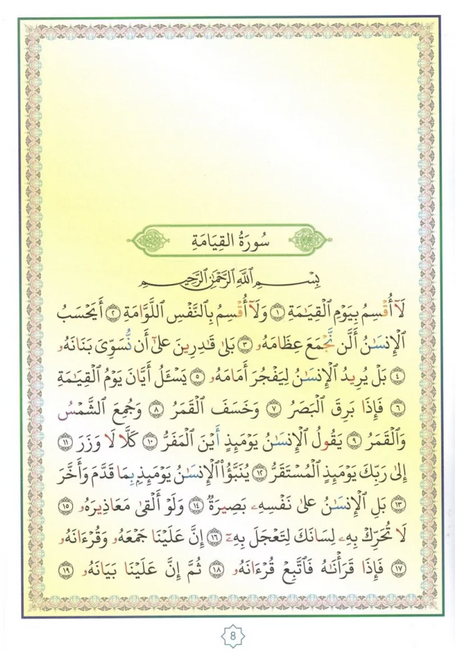 سُورَةُ القِيَامَةِ
بِسْمِ ٱللَّهِ ٱلرَّحْمَٰنِ ٱلرَّحِيمِ
لَآ أُقْسِمُ بِيَوْمِ ٱلْقِيَـٰمَةِ ١ وَلَآ أُقْسِمُ بِٱلنَّفْسِ ٱللَّوَّامَةِ ٢ أَيَحْسَبُ
ٱلْإِنسَـٰنُ أَلَّن نَّجْمَعَ عِظَامَهُۥ ٣ بَلَىٰ قَـٰدِرِينَ عَلَىٰٓ أَن نُّسَوِّىَ بَنَانَهُۥ
٤ بَلْ يُرِيدُ ٱلْإِنسَـٰنُ لِيَفْجُرَ أَمَامَهُۥ ٥ يَسْـَٔلُ أَيَّانَ يَوْمُ ٱلْقِيَـٰمَةِ
٦ فَإِذَا بَرِقَ ٱلْبَصَرُ ٧ وَخَسَفَ ٱلْقَمَرُ ٨ وَجُمِعَ ٱلشَّمْسُ
وَٱلْقَمَرُ ٩ يَقُولُ ٱلْإِنسَـٰنُ يَوْمَئِذٍ أَيْنَ ٱلْمَفَرُّ ١٠ كَلَّا لَا وَزَرَ ١١
إِلَىٰ رَبِّكَ يَوْمَئِذٍ ٱلْمُسْتَقَرُّ ١٢ يُنَبَّؤُا۟ ٱلْإِنسَـٰنُ يَوْمَئِذٍۭ بِمَا قَدَّمَ وَأَخَّرَ
١٣ بَلِ ٱلْإِنسَـٰنُ عَلَىٰ نَفْسِهِۦ بَصِيرَةٌ ١٤ وَلَوْ أَلْقَىٰ مَعَاذِيرَهُۥ ١٥
لَا تُحَرِّكْ بِهِۦ لِسَانَكَ لِتَعْجَلَ بِهِۦٓ ١٦ إِنَّ عَلَيْنَا جَمْعَهُۥ وَقُرْءَانَهُۥ
١٧ فَإِذَا قَرَأْنَـٰهُ فَٱتَّبِعْ قُرْءَانَهُۥ ١٨ ثُمَّ إِنَّ عَلَيْنَا بَيَانَهُۥ ١٩
8